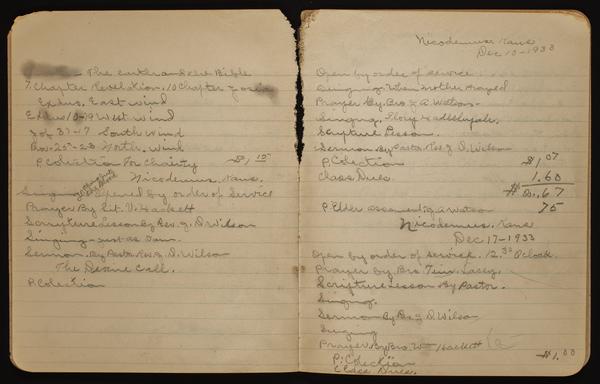 The earth and Bible
7. Chapter Revelation. 10 Chapter
Exdus. East wind
Exdus 10-19 West wind
Job 37-17 South wind
Pro. 25-23 North. wind
P. Colection For Charity $1.
Nicodemus, Kans.
Singing opened by order of Service
Prayer By Sit. V. Hackett
Scripture Lesson By Rev. J. D. Wilson
Singing - Just as I am.
Sermon. By Pastor Rev. J. D. Wilson
The Devine Call.
P. Colection
Nicodemus, Kans
Dec 10-1933
Open by order of service.
Singing. When Mother Prayed
Prayer By. Bro. J. A. Watson.
Singing, Glory Halleluyah.
Scripture Lesson.
Sermon By Pastor Rev. J. D. Wilson
P. Colection $1.07
Class Dues. 1.60
$2.67
P. Elder assesment J. A. Watson 75
Nicodemus. Kans
Dec 17-1933
Open by order of service. 12.30 O'clock.
Prayer by Bro. Tim. Lacey.
Scripture Lesson By Pastor.
Singing.
Sermon By Rev. J. D. Wilson
Singing
Prayer By Bro. Wm Hackett
P. Colection $1.00
Class Dues.